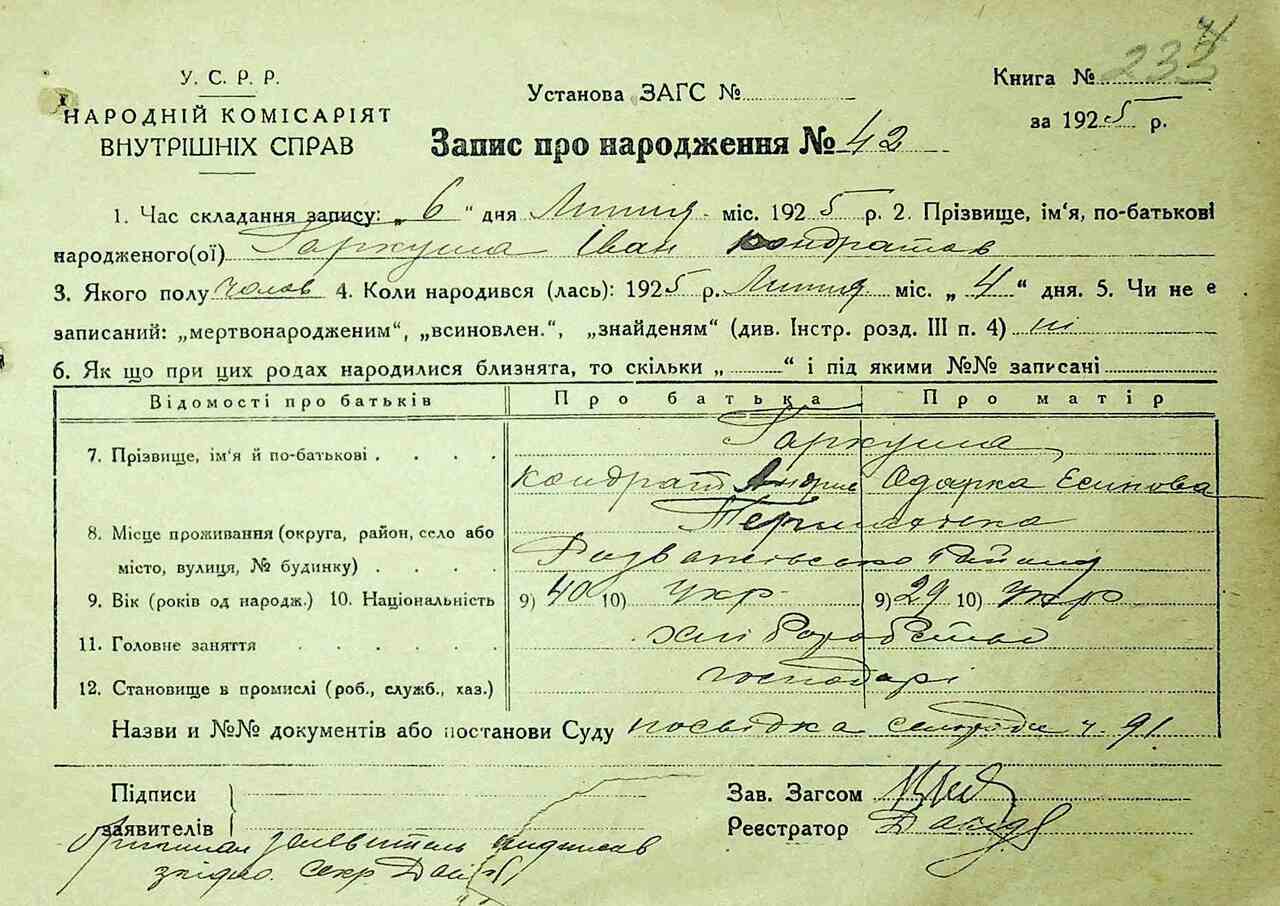 У. С. Р. Р.
НАРОДНІЙ КОМІСАРІЯТ
ВНУТРІШНІХ СПРАВ
Установа ЗАГС №
Книга № 233
за 1925 р.
Запис про народження № 42
1. Час складання запису: „6“ дня Липня міс. 1925 р. 2. Прізвище, ім'я, по-батькові
народженого(ої) Гаркуша Іван Кондратов
3. Якого полу чолов 4. Коли народився (лась): 1925 р. Липня міс. „4“ дня. 5. Чи не є
записаний: „мертвонародженим“, „всиновлен.“, „знайденям“ (див. Інстр. розд. III п. 4) ні
6. Як що при цих родах народилися близнята, то скільки „ “ і під якими №№ записані
Відомості про батьків Про батька Про матір
Гаркуша
7. Прізвище, ім'я й по-батькові . . . . Кондрат Андрив Одарка Есипова
8. Місце проживання (округа, район, село або
місто, вулиця, № будинку) . . . . Розважівсько Району
9. Вік (років од народж.) 10. Національність 9) 40 10) Укр 9) 29 10) Укр
11. Головне заняття . . . . . хліборобство
12. Становище в промислі (роб., служб., хаз.) господарі
Назви и №№ документів або постанови Суду посвідка сельради ч. 91
Підписи
заявителів
Зав. Загсом
Реєстратор
Оригинал заявитель підписав
згідно. Секр